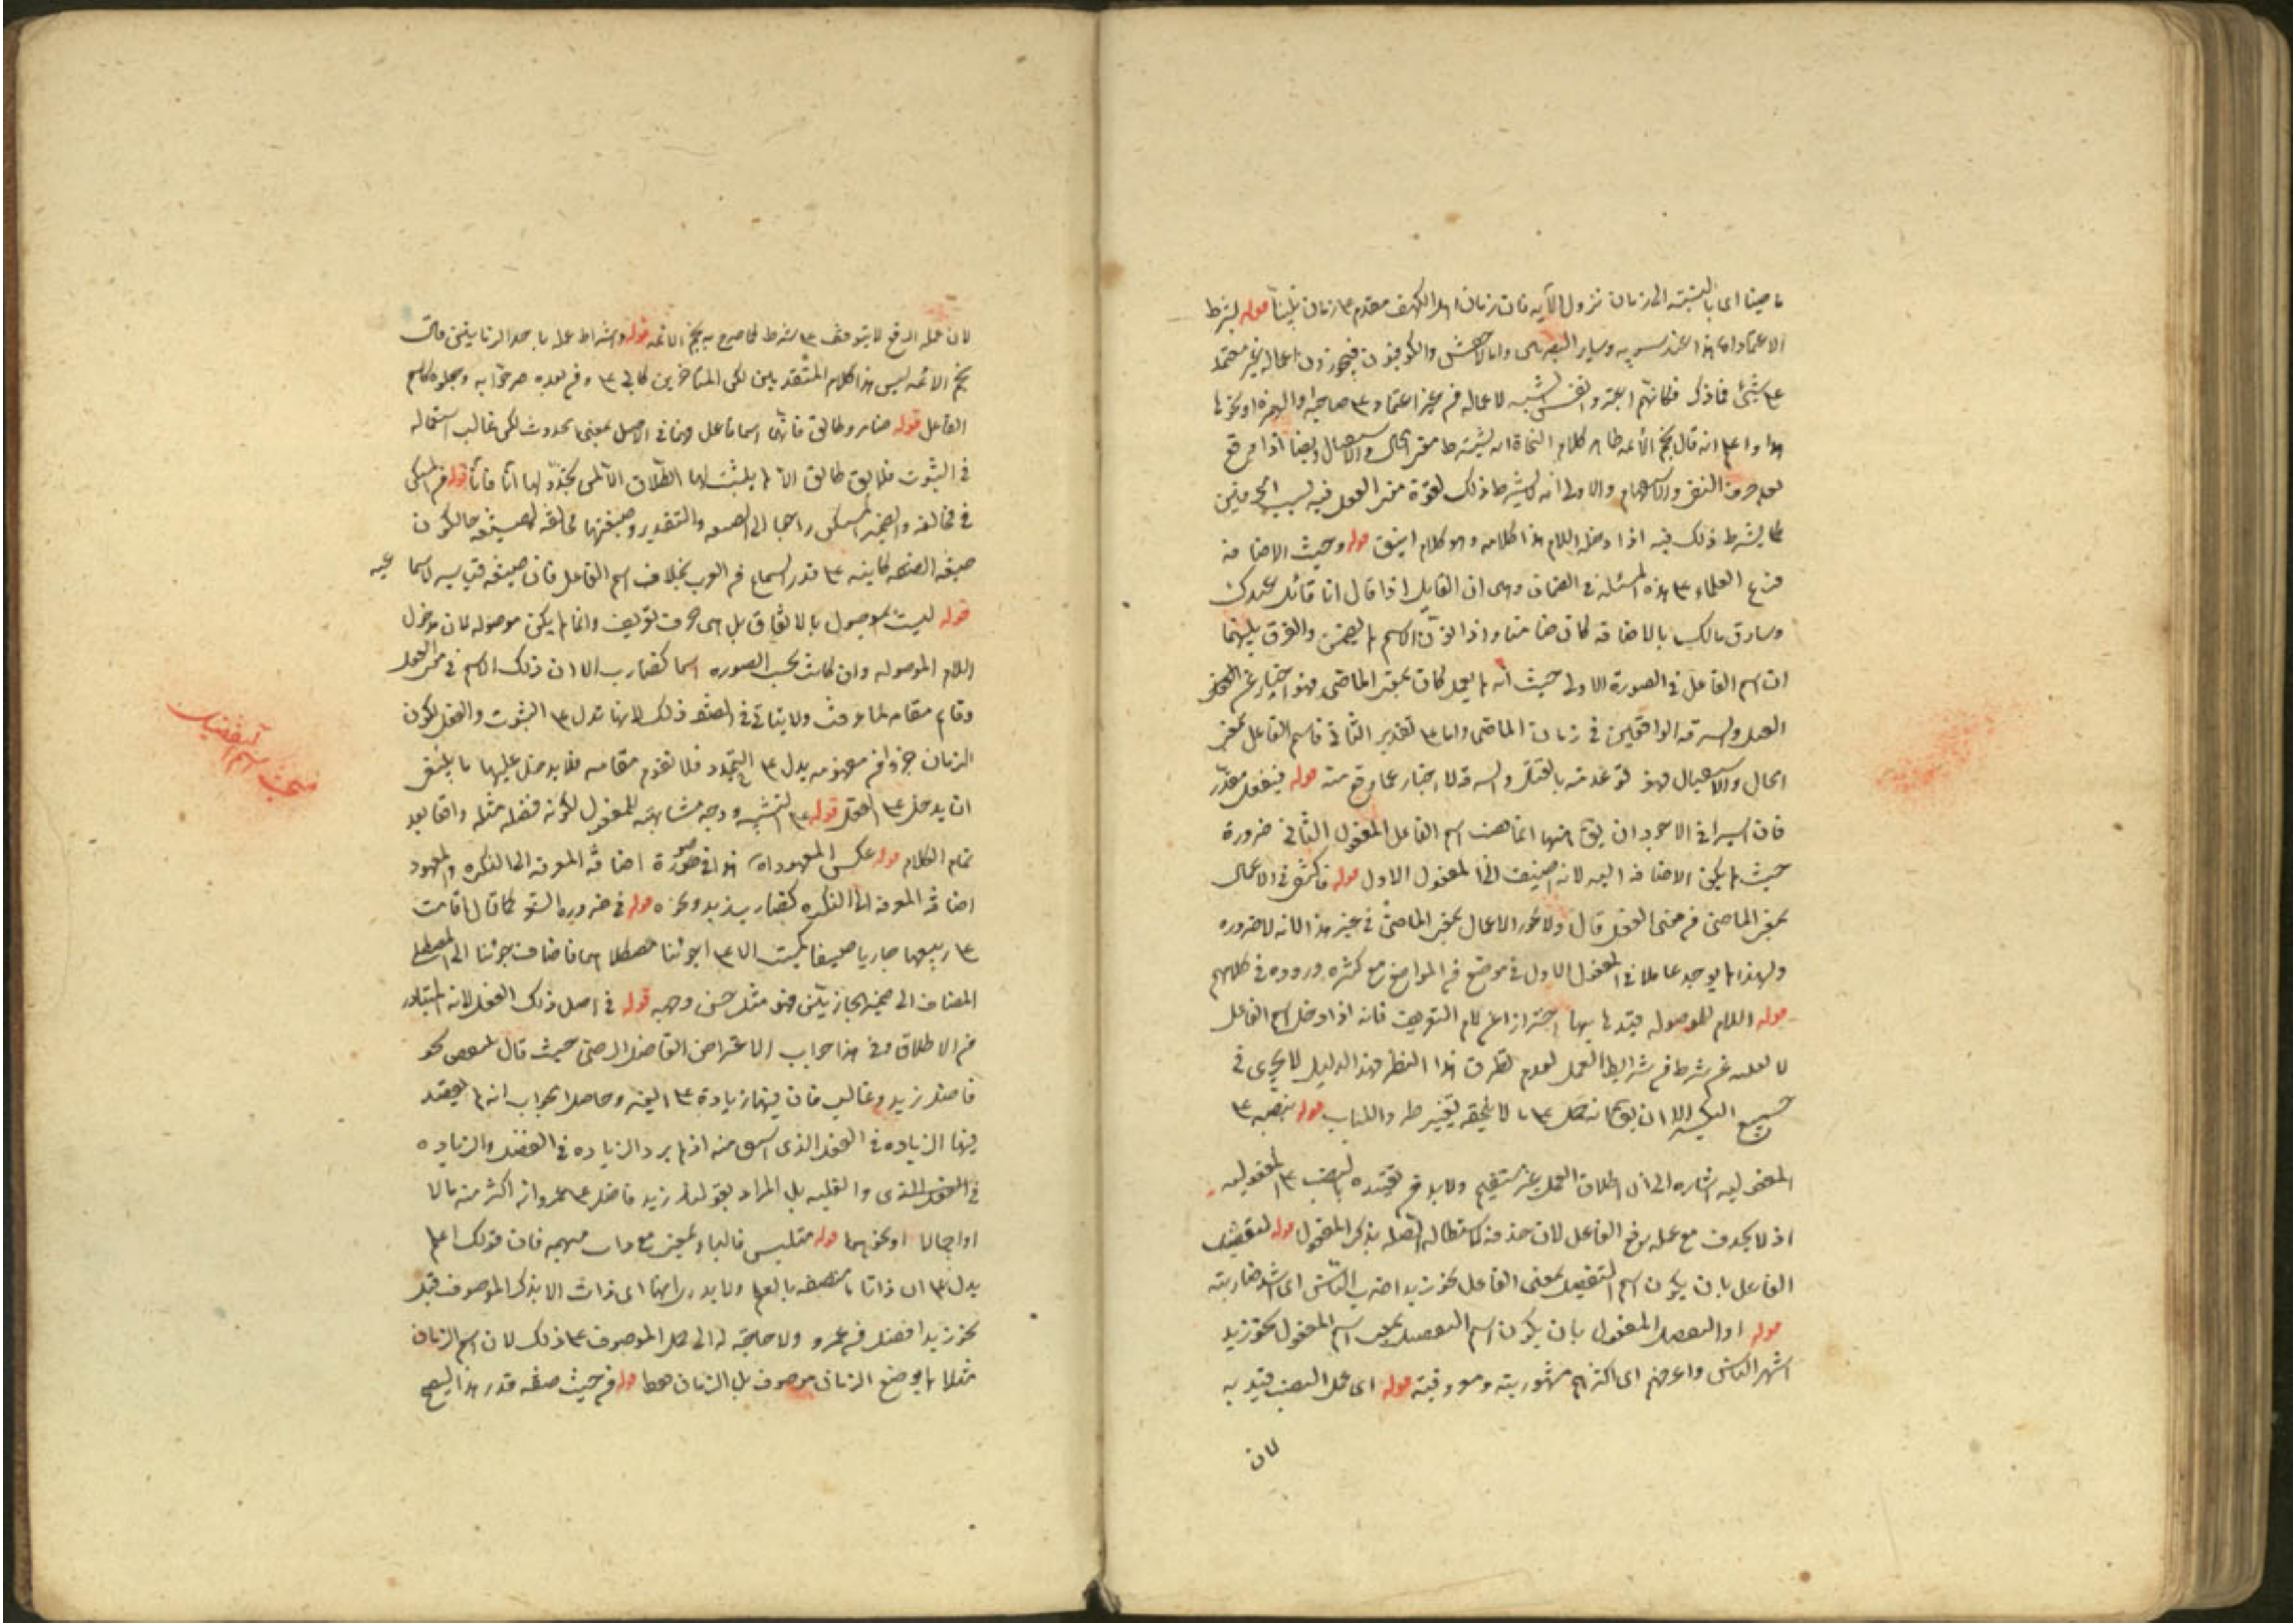 ماضيا اى بالنسبة الى زمان نزول الآية فان زمان اهل الكهف مقدم على زمان نبينا قوله بشرط
الاعتماد اى هذا عند سيبويه وساير البصريين واما الاخفش والكوفيون فيجوزون اعماله غير معتمد
على شئ مما ذكر فكانهم اعتبروا نفس الشبه لاعماله من غير اعتماد على صاحبه او الهمزة او نحوها
هذا واعلم انه قال نجم الأئمه ظاهر كلام النحاة انه يشترط معنى الحال والاستقبال ايضا اذا وقع
بعد حرف النفى والاستفهام والاولى انه لا يشترط ذلك لقوة معنى الفعل فيه بسبب الحرفين
كما لا يشترط ذلك فيه اذا دخله اللام هذا كلامه وهو كلام انيق قوله وحيث الاضافة
فرع العلماء على هذه المسئلة فى الضمان وهى ان القايل اذا قال انا قاتل عبدك
وسارق مالك بالاضافة كان ضامنا واذا نون الاسم لم يضمن والفرق بينهما
ان اسم الفاعل فى الصورة الاولى حيث انه لم يعمل كان بمعنى الماضى فهو اخبار عن
القتل والسرقة الواقعين فى زمان الماضى واما على تقدير الثانى فاسم الفاعل بمعنى
الحال والاستقبال فهو توعد منه بالقتل والسرقة لا اخبار عما وقع منه قوله فبفعل مقدر
قال السيرافى الاجود ان يق ههنا انما نصب اسم الفاعل المفعول الثانى ضرورة
حيث لم يكن الاضافة اليه لانه اضيف الى المفعول الاول قوله فاكتفى فى الاعمال
بمعنى الماضى من معنى الفعل قال ولا يجوز الاعمال بمعنى الماضى فى غير هذا لانه لا ضرورة
ولهذا لم يوجد عاملا فى المفعول الاول فى موضع من المواضع مع كثرة وروده فى كلامهم
قوله اللام الموصوله قيدها بها احترازا عن لام التعريف فانه اذا دخل اسم الفاعل
لا يعمله من غير شرط من شرايط العمل لعدم تطرق هذا النظر فهذا الدليل لا يجرى فى
جميع الا ان يق انه حمل على ما لا يلحقه تغيير طردا للباب قوله بنصبه على
المفعولية اشارة الى ان اطلاق العمل غير مستقيم ولا بد من تقييده بالنصب على المفعولية
اذ لا يحذف مع عمله برفع الفاعل لان حذفه لاستطاله الصله بذكر المفعول قوله لتفضيل
الفاعل بان يكون اسم التفضيل بمعنى الفاعل نحو زيد اضرب الناس اى اشد ضاربيته
قوله او التفضيل المفعول بان يكون اسم التفضيل بمعنى اسم المفعول نحو زيد
اشهر الناس واعرفهم اى اكثرهم مشهوريته ومعروفيته قوله اى عمل النصب قيد به
لان
لان عمله الرفع لا يتوقف على شرط كما صرح به نجم الائمه قوله واشتراط عمله باحد الزمانين قال
نجم الائمه ليس هذا كلام المتقدمين لكن المتاخرين كابى على ومن بعده صرحوا به وجعلوه كاسم
الفاعل قوله ضامر وطالق فانهما اسما فاعل وهما فى الاصل بمعنى الحدوث لكن غالب استعماله
فى الثبوت فلا يق طالق الا لم يثبت لها الطلاق الا لمن تجدد لها انا فانا قوله
فى فخالفه والضمير راجعا الى الصيغه والتقدير وصيغتها مخالفه لصيغته حالكون
صيغه الصفه كاينه على قدر السماع من العرب بخلاف اسم الفاعل فان صيغته قياسيه لا سماعيه
قوله ليست بموصول بالاتفاق بل هى حرف تعريف وانما لم يكن موصوله لان مدخول
اللام الموصوله وان كانت بحسب الصوره اسما كضارب الا ان ذلك الاسم فى معنى الفعل
وقايم مقامه لما عرفت ولا يتاتى فى الصفه ذلك لانها تدل على الثبوت والفعل لكون
الزمان جزءا من مفهومه يدل على التجدد فلا تقوم مقامه فلا يدخل عليها ما ينبغى
ان يدخل على الفعل قوله على التشبيه ووجه مشابهته للمفعول لكونه فضله مثله واقعا بعد
تمام الكلام قوله عكس المعهود اه هذا فى صورة اضافه المعرفه الى النكره والمعهود
اضافه المعرفه الى النكره كضارب زيد ونحوه قوله فى ضرورة الشعر كما قال اقامت
على ربعيهما جارتا صفا كميت الاعالى جونتا مصطلاهما فاضاف جونتا الى المصطلى
المضاف الى ضمير الجارتين فهو مثل حسن وجهه قوله فى اصل ذلك الفعل لانه المتبادر
من الاطلاق ففى هذا جواب الاعتراض الفاضل الرضى حيث قال ينتقض بنحو
فاضل زيد وغالب فان فيهما زيادة على الغير وحاصل الجواب انه لم يقصد
فيهما الزياده فى الفعل الذى اشتق منه اذ لم يرد الزياده فى الفضل والزياده
فى الغلبه بل المراد بقولنا زيد فاضل على عمرو انه اكثر منه مالا
او جمالا او نحوهما قوله متلبس فالباء بمعنى مع وذات مبهمه فان قولك اعلم
يدل على ان ذاتا ما متصفه بالعلم ولا يدرى انها اى ذات الا بذكر الموصوف قبل
نحو زيد افضل من عمرو ولا حاجة له الى حمل الموصوف على ذلك لان اسم الزمان
مثلا لم يوضع الزمان موصوف بل الزمان فقط قوله من حيث صفه قدر هذا ليصح
مبحث اسم التفضيل